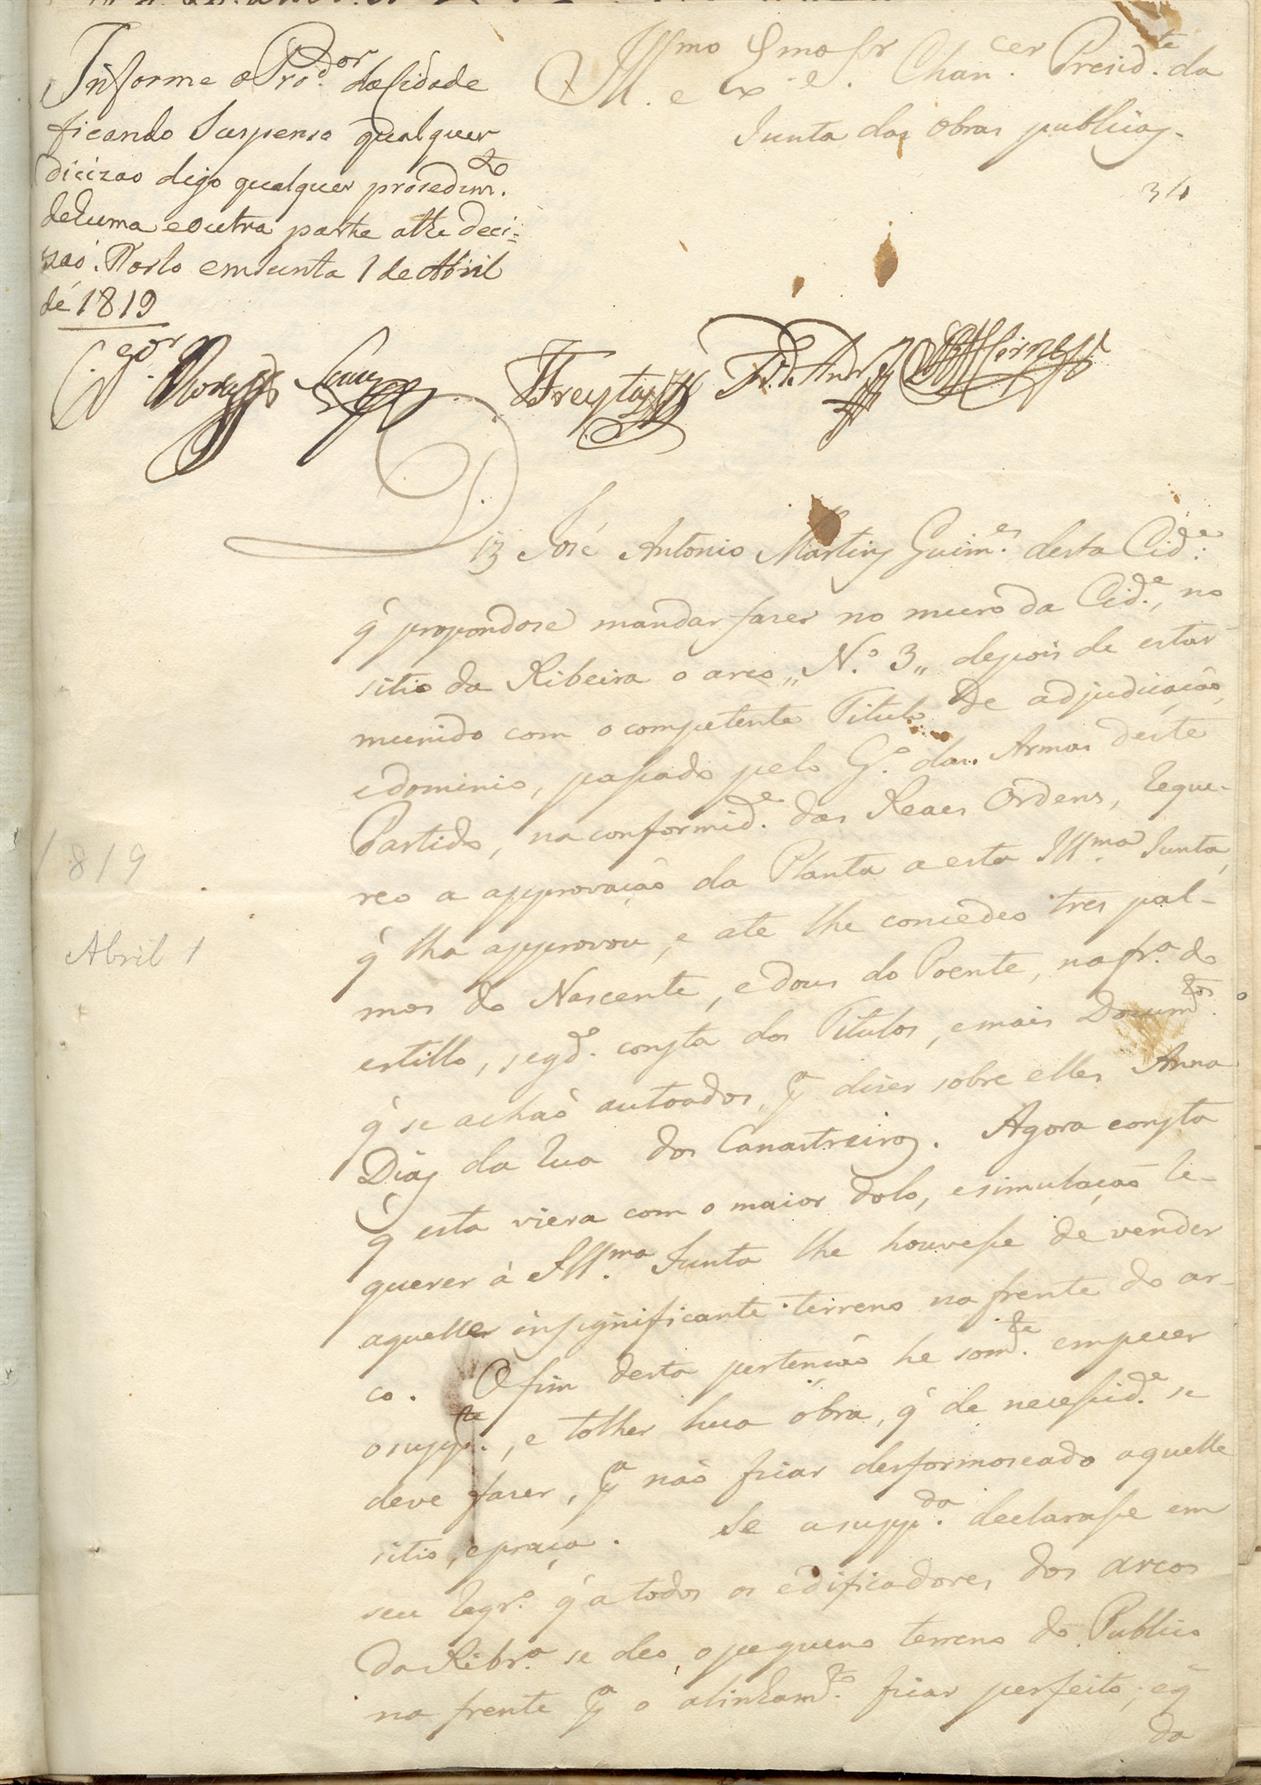 Informe o Pro.dor da Cidade
ficando Suspenso qualquer
dicizao digo qualquer prosedim.to
de huma e outra parte athe deci=
zaó. Porto em Junta 1 de Abril
de 1819
Ill.mo e Ex.mo Sr. Chan.cer Presid.te da
Junta das Obras publicas.
34
Freytas
D.
13 José Antonio Martins Guim.es desta Cid.e
q̃ propondose mandar fazer no muro da Cid.e, no
sitio da Ribeira o arco „N.o 3„ depois de estar
munido com o competente Titulo de adjudicação,
e dominio, passado pelo G.o das Armas deste
Partido, na conformid.e das Reaes Ordens, reque-
reo a approvação da Planta a esta Ill.ma Junta,
q̃ lha approvou, e ate lhe concedeo tres pal-
mos do Nascente, e dous do Poente, na fr.a do
estillo, seg.do consta dos Titulos, e mais Docum.tos
q̃ se achaõ autoados, p.a dizer sobre elles Anna
Dias da rua dos Canastreiros. Agora consta
q̃ esta viera com o maior dolo, e simulação re-
querer à Ill.ma Junta lhe houvesse de vender
aquelle insignificante terreno na frente do ar-
co. O fim desta pertenção he som.te empecer
o supp.te, e tolher hua obra, q̃ de necessid.e se
deve fazer, p.a naõ ficar desformoseado aquelle
sitio, e praça. Se a supp.da declarasse em
seu reqr.o q̃ a todos os edificadores dos arcos
da Ribr.a se deo o pequeno terreno do Publico
na frente p.a o alinham.to ficar perfeito, e q̃
da
1819
Abril 1